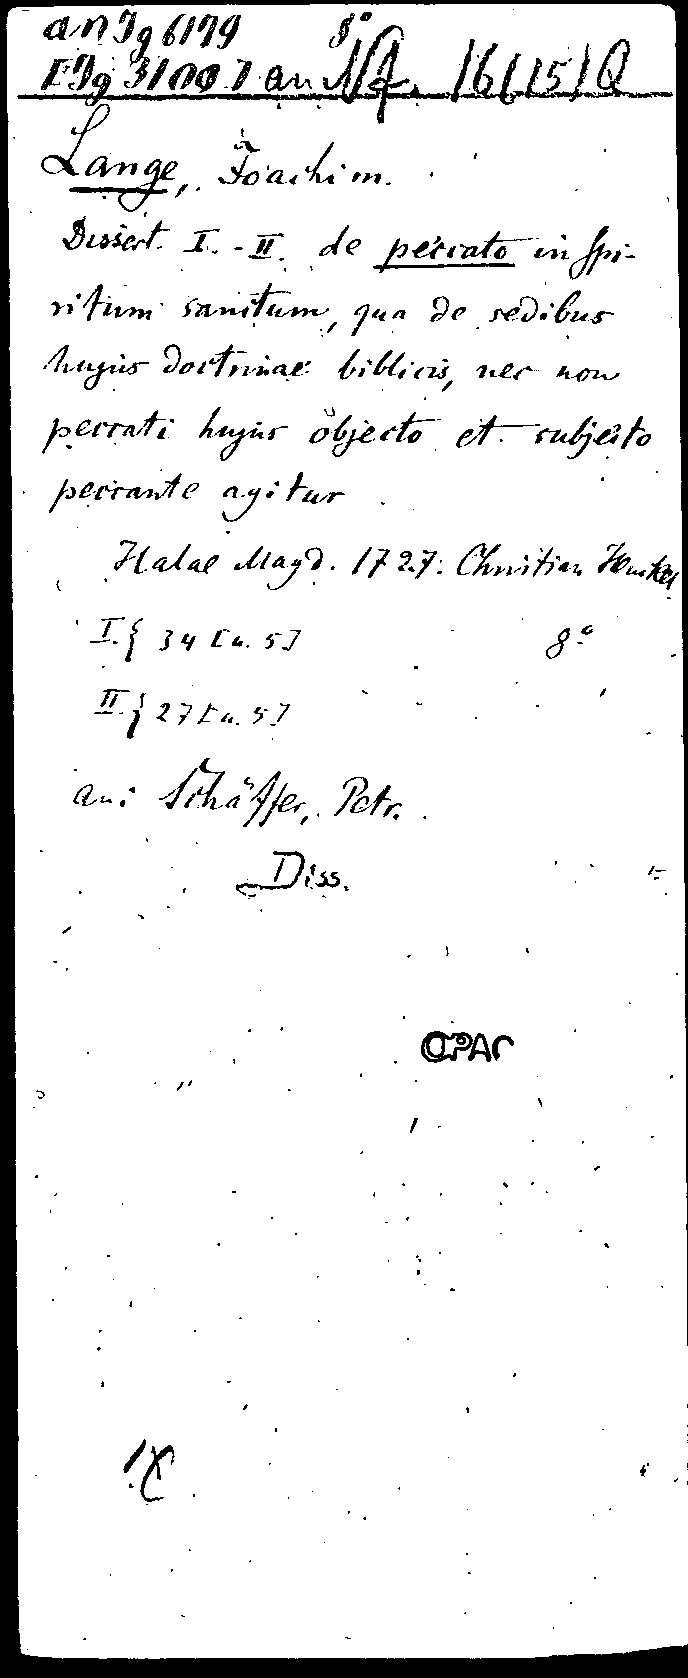 an Jg 6179 8°
[Jg 3100] an 16(15)Q
Lange, Joachim.
Dissert. I.-II. de peccato in Spi-
ritum sanctum, qua de sedibus
hujus doctrinae biblicis, nec non
peccati hujus objecto et subjecto
peccante agitur
Halae Magd. 1727: Christian Henckel
I.{ 34 [u. 5] 8°
II{ 27 [u. 5]
an: Schäffer, Petr.
Diss.
OPAC